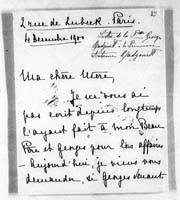 2 rue de Lubeck. Paris.
4 décembre 1901
Lettre de la Pcesse George
Ma chère Mère,
Je ne vous ai
pas écrit depuis longtemps
l'ayant fait à mon Beau
Père et Georges pour les affaires
- Aujourd'hui, je viens vous
demander, si Georges venant